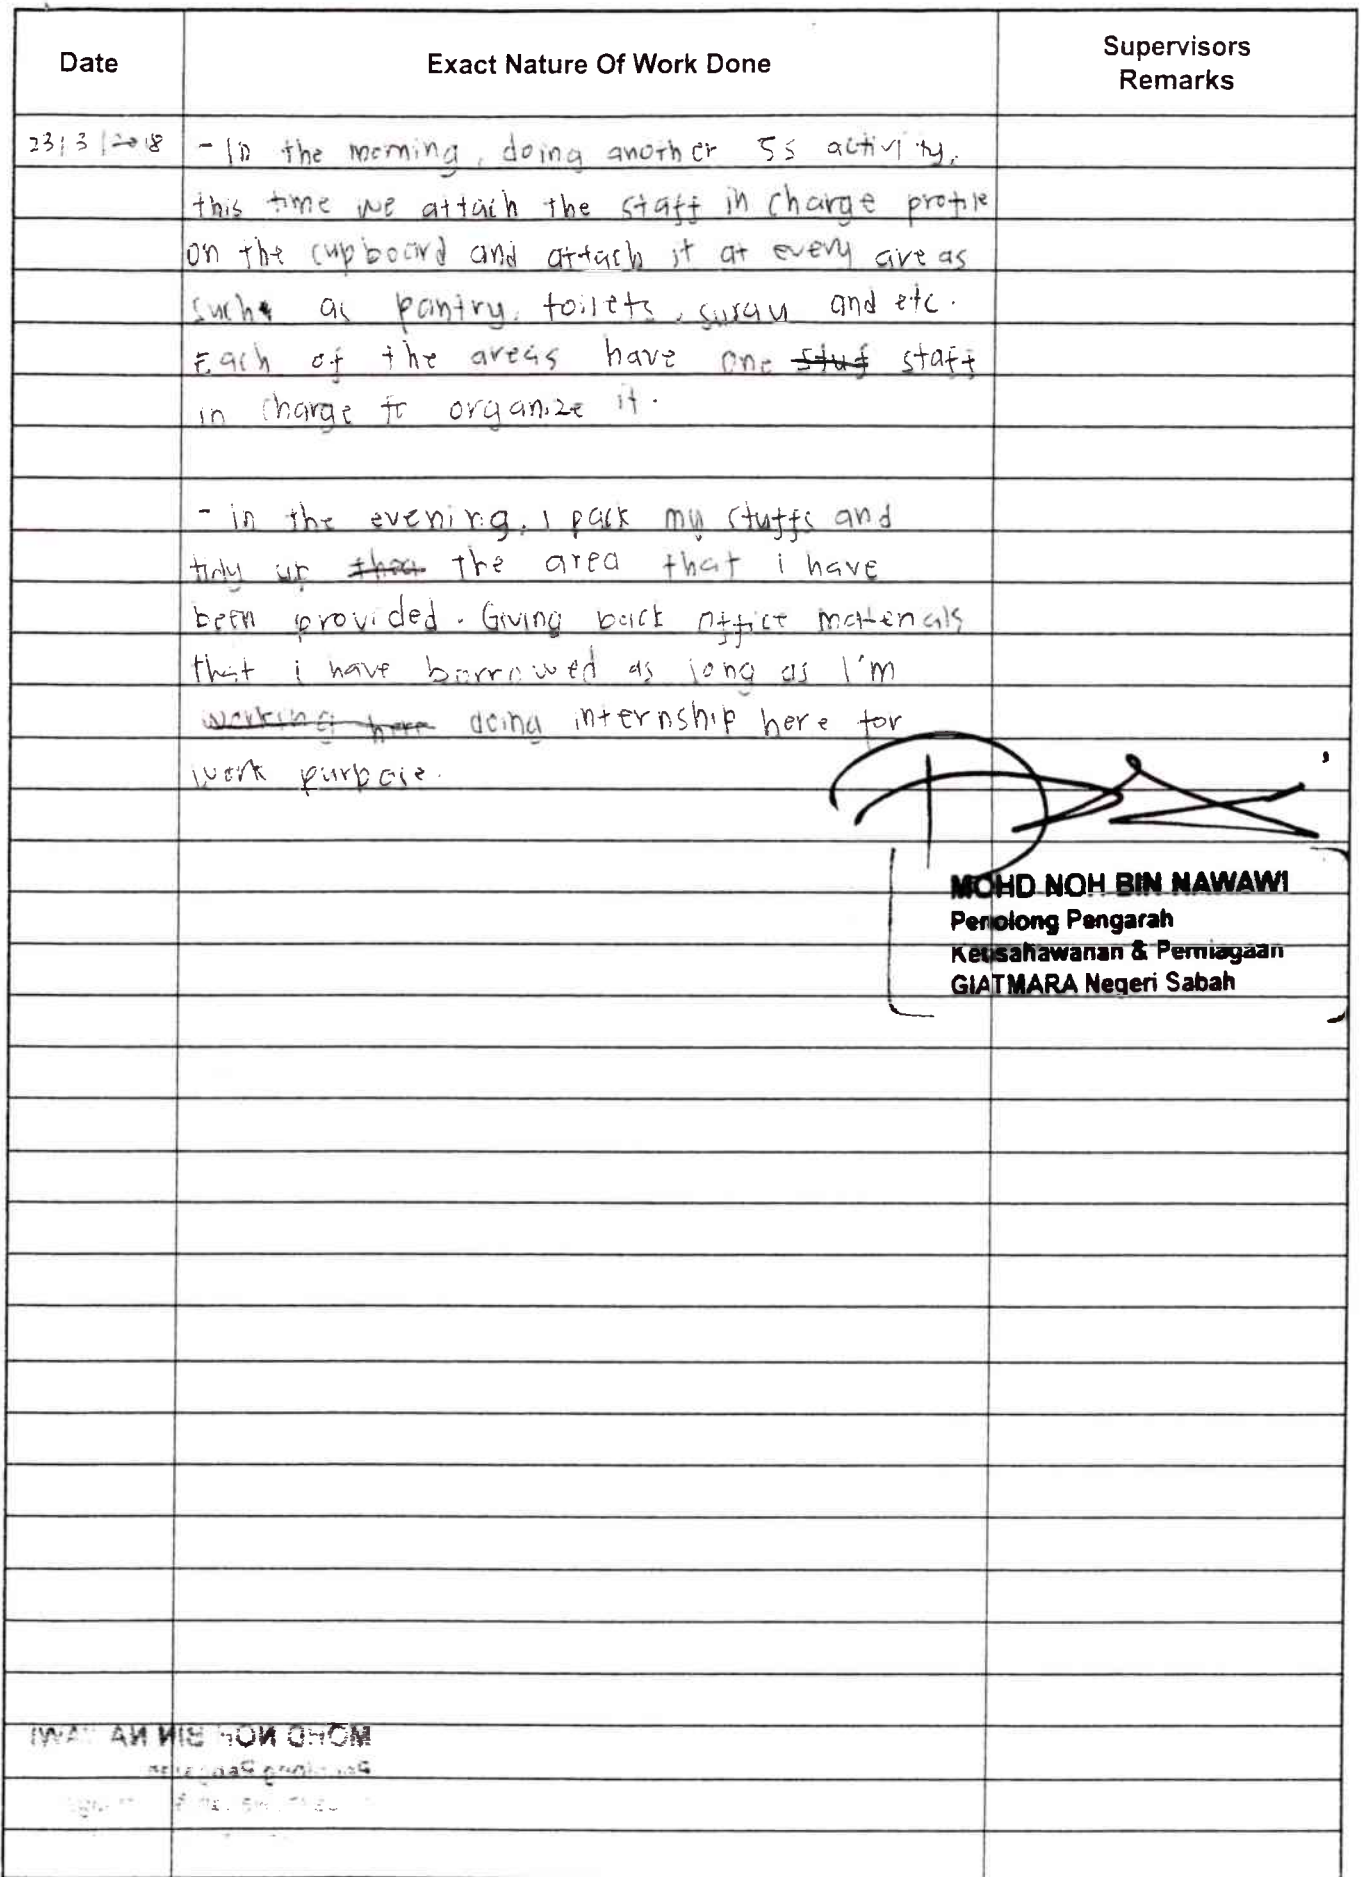 Date
Exact Nature Of Work Done
Supervisors
Remarks
23/3/2018
- In the morning, doing another 5s activity,
this time we attach the staff in charge profile
on the cupboard and attach it at every areas
such as pantry, toilets, surau and etc.
Each of the areas have one stuf staff
in charge to organize it.
- in the evening, I pack my stuffs and
tidy up the area that i have
been provided. Giving back office materials
that i have borrowed as long as I'm
working here doing internship here for
work purpose.
MOHD NOH BIN NAWAWI
Penolong Pengarah
Keusahawanan & Perniagaan
GIATMARA Negeri Sabah